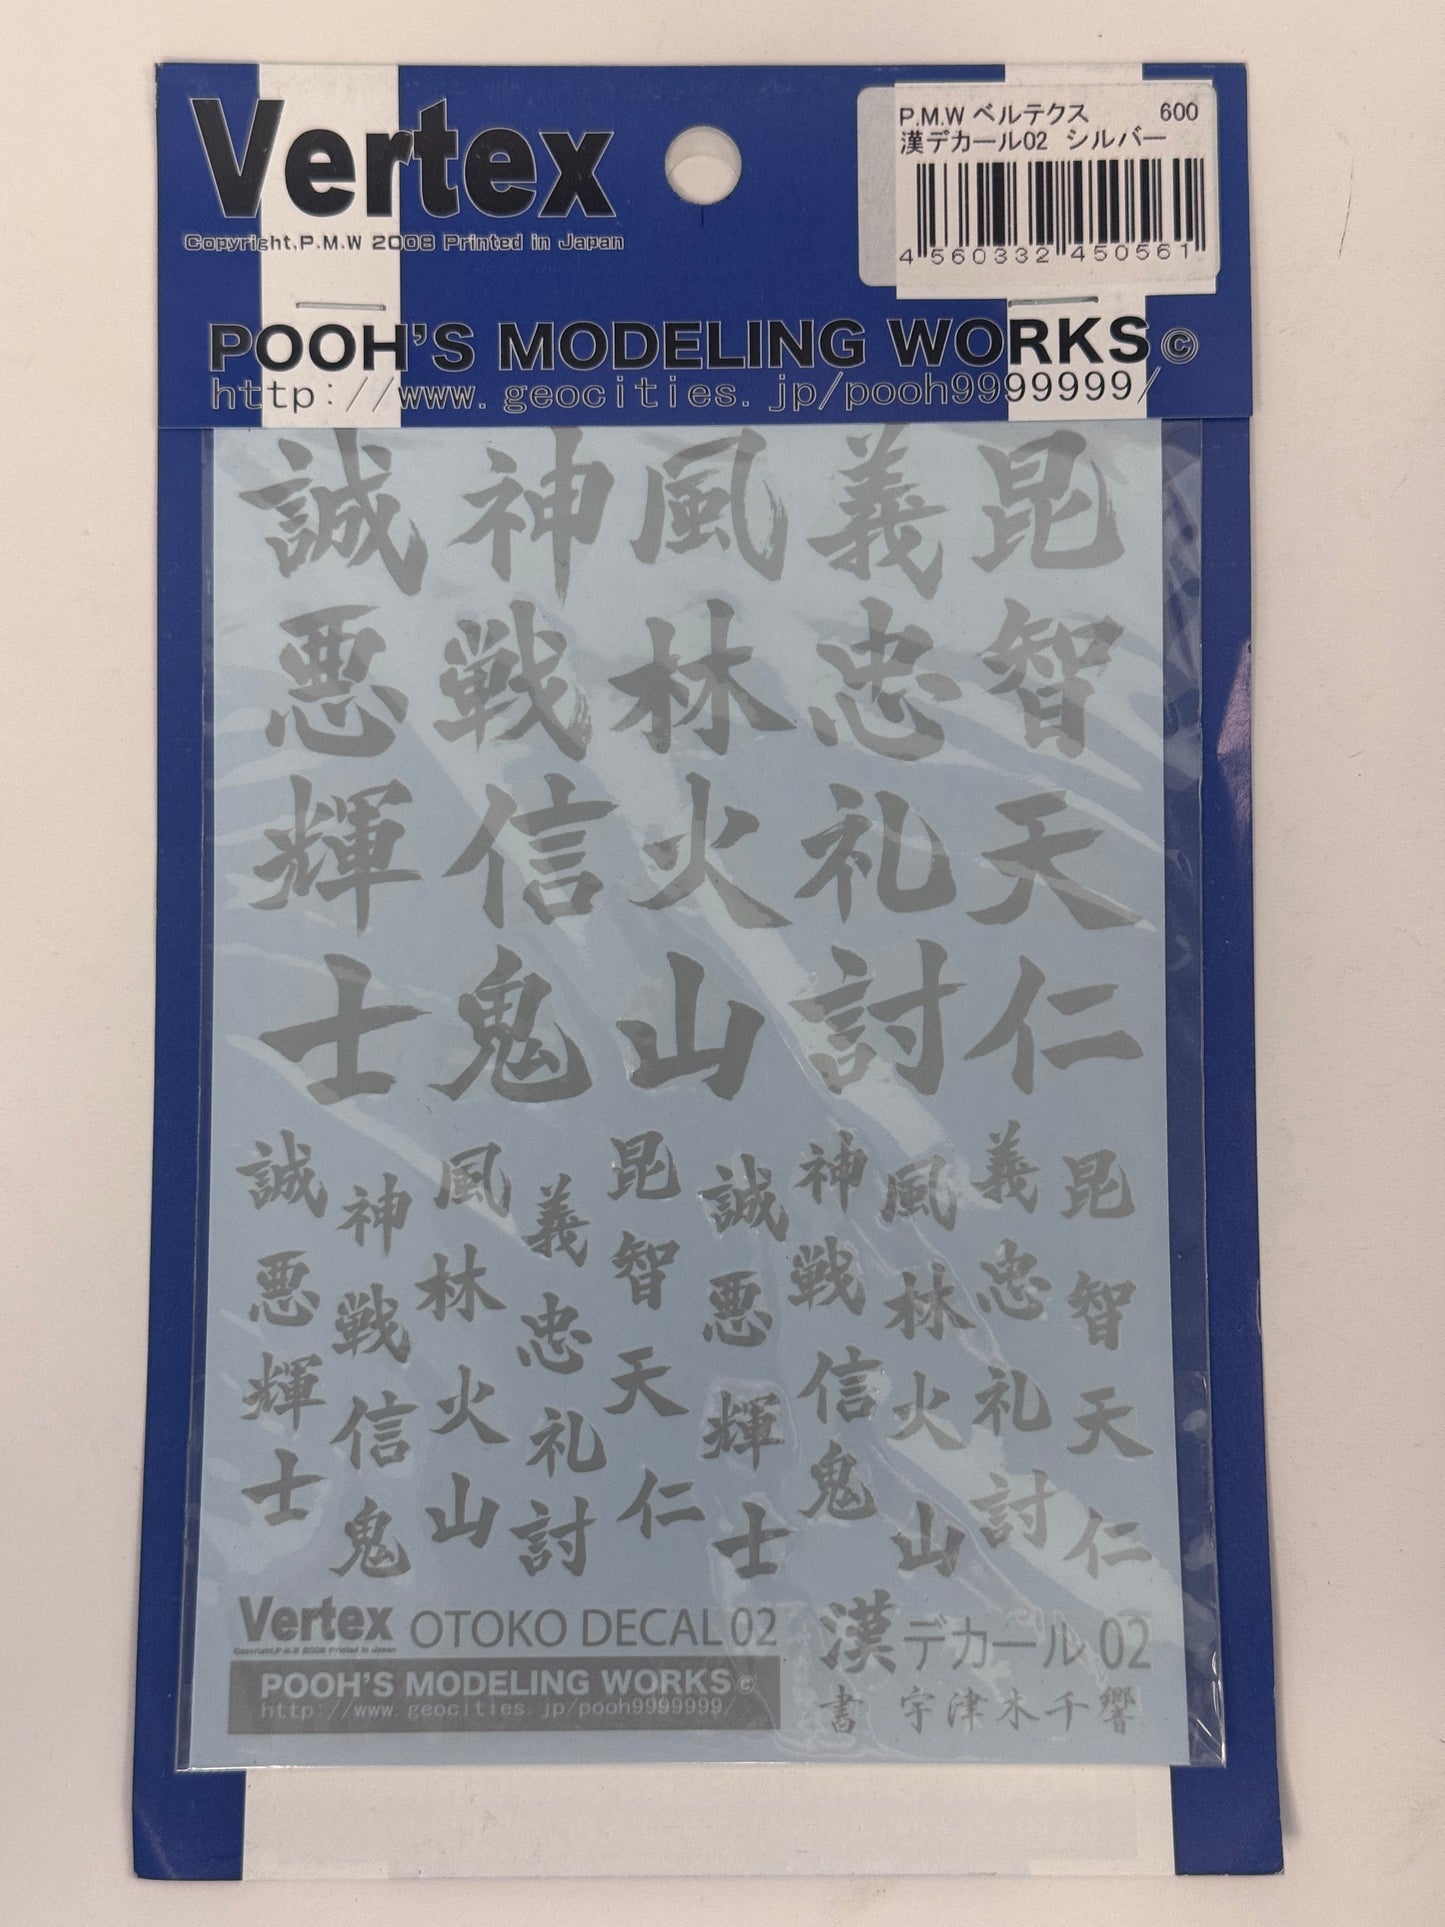 Vertex
Copyright.P.M.W 2008 Printed in Japan
P.M.W ベルテクス 600
漢デカール02 シルバー
4 560332 450561
POOH'S MODELING WORKS©
http://www.geocities.jp/pooh9999999/
誠 神 風 義 昆
悪 戦 林 忠 智
輝 信 火 礼 天
士 鬼 山 討 仁
誠 神 風 義 昆 誠 神 風 義 昆
悪 戦 林 忠 智 悪 戦 林 忠 智
輝 信 火 礼 天 輝 信 火 礼 天
士 鬼 山 討 仁 士 鬼 山 討 仁
Vertex OTOKO DECAL 02
Copyright.P.M.W 2008 Printed in Japan
POOH'S MODELING WORKS©
http://www.geocities.jp/pooh9999999/
漢デカール 02
書 宇津木千響